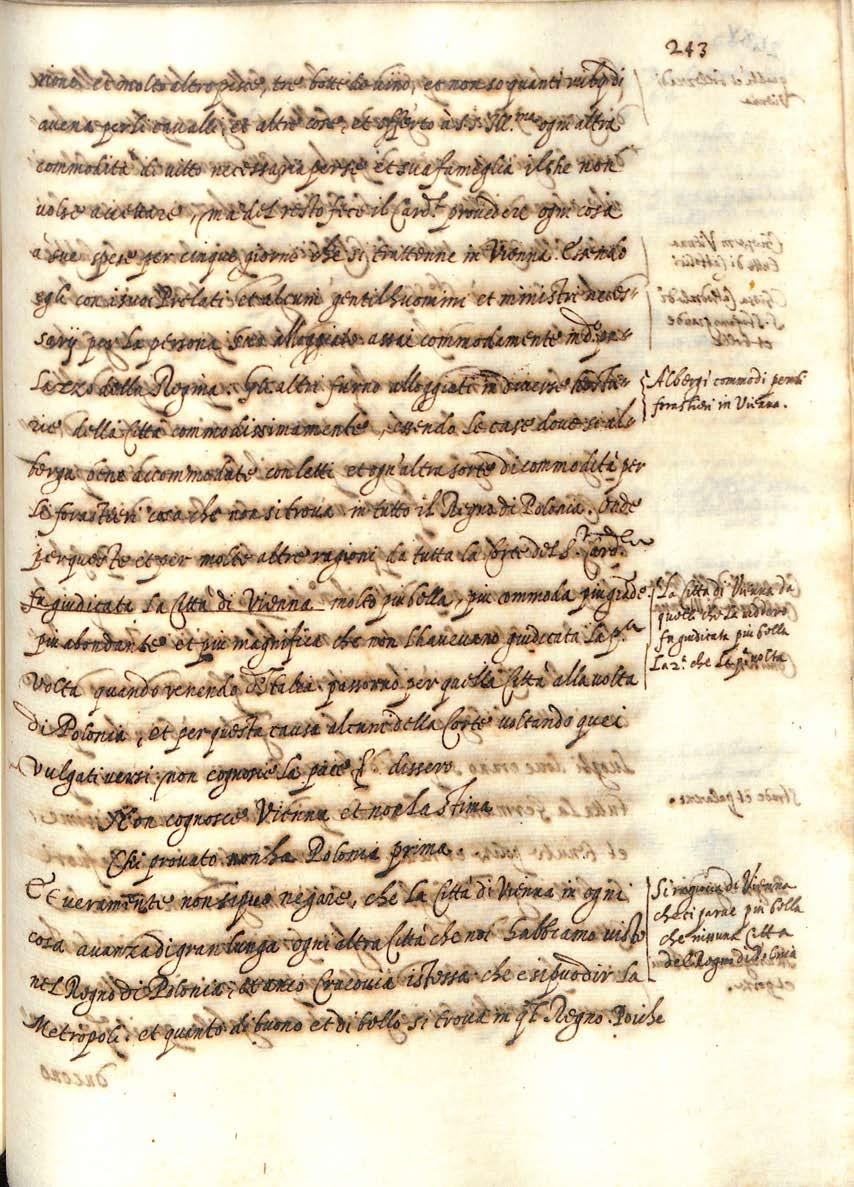 243
rione, et molto altro pesce, tre botte de vino, et non so quanti rubij di
avena per li cavalli, et altre cose, et offerto à S. S. Ill.ma ogni altra
commodita di vitto necessaria per se et sua fameglia il che non
volse accettare, ma del resto fece il Card.l provedere ogni cosa
a sue spese per cinque giorni che si trattenne in Vienna. Essendo
egli con i suoi Prelati et alcuni gentilhuomini et ministri neces-
sarij per la persona sua alloggiato assai commodamente in d.o pa-
lazzo della Regina. Gli altri furno alloggiati in diverse hosta-
rie della Città commodissimamente, essendo le case dove si al-
berga bene accommodate con letti et ogn'altra sorte di commodità per
le forastieri cosa che non si trova in tutto il Regno di Polonia. Onde
per queste et per molte altre ragioni da tutta la Corte del S.r Card.le
fu giudicata la Città di Vienna molto piu bella, piu commoda piu grãde
piu abondante et piu magnifica che non l'havevano giudicata la p.a
volta quando venendo d'Italia passorno per quella Città alla volta
di Polonia, et per questa causa alcuni della Corte voltando quei
vulgati versi, non cognosce la pace &c dissero
Non cognosce Vienna et non la stima
Chi provato non ha Polonia prima
Et veramente non si puo negare, che la Città di Vienna in ogni
cosa avanza di gran lunga ogni altra Città che noi habbiamo visto
nel Regno di Polonia, et anco Cracovia istessa che e si puo dir la
Metropoli et quanto di buono et di bello si trova in q.l Regno. Poiche
Alberghi commodi per li
forastieri in Vienna.
La Città di Vienna da
quelli che la videro
fu giudicata piu bella
la 2.a che la p.a volta
Si ragiona di Vienna
che ti parae piu bella
che nissuna Città
del Regno di Polonia